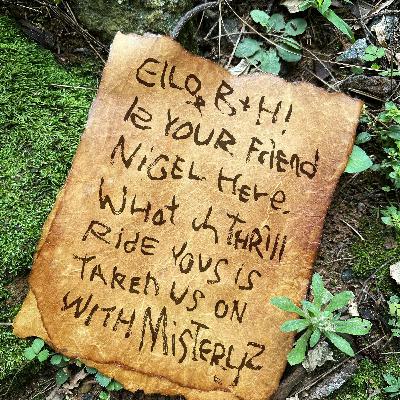 EllO B+H!
le YOUR Friend
NiGEL HERE.
WHat uh THRill
RiDE YOUS is
TAKEN US ON
WITH MiSTERYZ